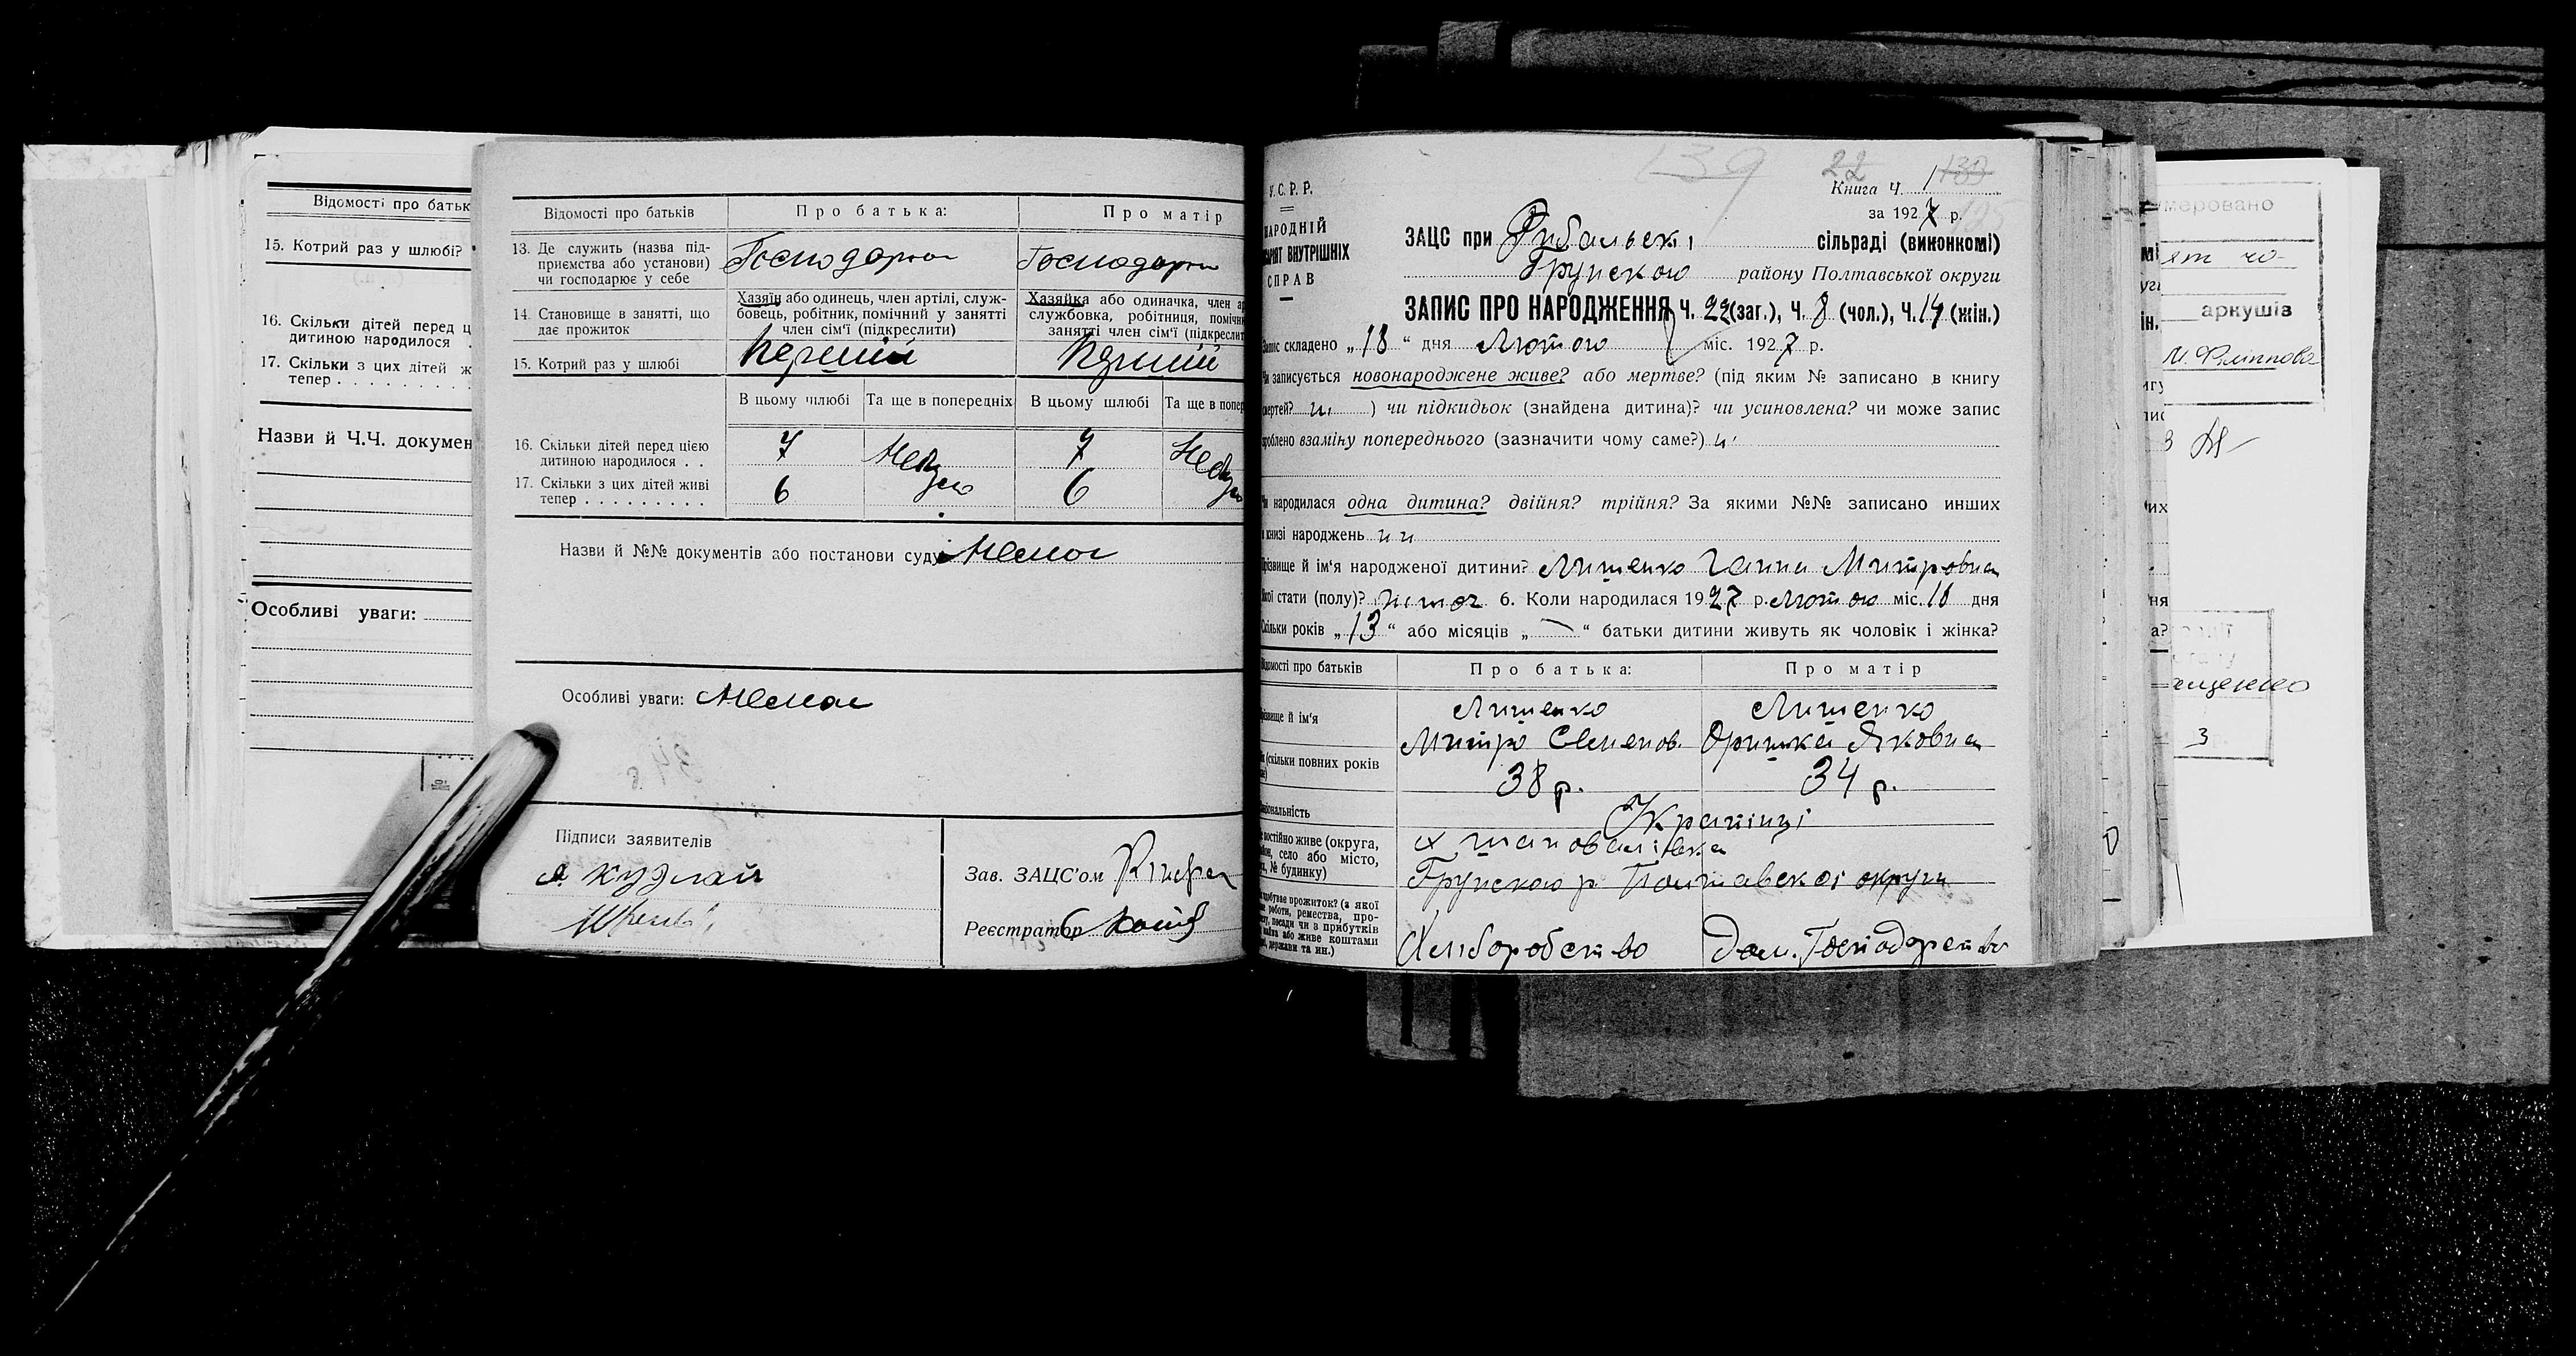 Відомості про батьк
15. Котрий раз у шлюбі?
16. Скільки дітей перед ц
дитиною народилося .
17. Скільки з цих дітей ж
тепер . . . . . . . . .
Назви й Ч.Ч. докумен
Особливі уваги:
Відомості про батьків
Про батька:
Про матір
13. Де служить (назва під-
приємства або установи)
чи господарює у себе
Господарює
Господарює
14. Становище в занятті, що
дає прожиток
Хазяїн або одинець, член артілі, служ-
бовець, робітник, помічний у занятті
член сім'ї (підкреслити)
Хазяйка або одиначка, член ар
службовка, робітниця, помічн
занятті член сім'ї (підкреслит
15. Котрий раз у шлюбі
Перший
Перший
В цьому шлюбі
Та ще в попередніх
В цьому шлюбі
Та ще в попер
16. Скільки дітей перед цією
дитиною народилося . .
7
7
17. Скільки з цих дітей живі
тепер . . . . . . . . . .
6
6
Назви й №№ документів або постанови суду Немає
Особливі уваги: Немає
Підписи заявителів
Зав. ЗАЦС'ом
Реєстратор
У.С.Р.Р.
НАРОДНІЙ
ВНУТРІШНІХ
СПРАВ
139
22
Книга Ч. 1
за 1927 р.
ЗАЦС при Рибальські сільраді (виконкомі)
Грунською району Полтавської округи
ЗАПИС ПРО НАРОДЖЕННЯ Ч. 22 (заг.), Ч. 8 (чол.), Ч. 14 (жін.)
Запис складено „18“ дня Лютого міс. 1927 р.
Чи записується новонароджене живе? або мертве? (під яким № записано в книгу
смертей? ) чи підкидьок (знайдена дитина)? чи усиновлена? чи може запис
зроблено взаміну попереднього (зазначити чому саме?)
Чи народилася одна дитина? двійня? трійня? За якими №№ записано инших
в книзі народжень
Прізвище й ім'я народженої дитини? Лишенко Ганна Митровна
Якої стати (полу)? жіноч 6. Коли народилася 1927 р. Лютого міс. 18 дня
Скільки років „13“ або місяців „—“ батьки дитини живуть як чоловік і жінка?
Відомості про батьків
Про батька:
Про матір
Прізвище й ім'я
Лишенко
Митро Семенов.
Лишенко
Оришка Яковна
(скільки повних років
38 р.
34 р.
Національність
Українці
постійно живе (округа,
село або місто,
№ будинку)
х Шаповалівка
Грунского р Полтавської округи
здобуває прожиток? (з якої
роботи, ремества, про-
посади чи з прибутків
майна або живе коштами
держави та ин.)
Хліборобство
Дом. Господарство
аркушів
3